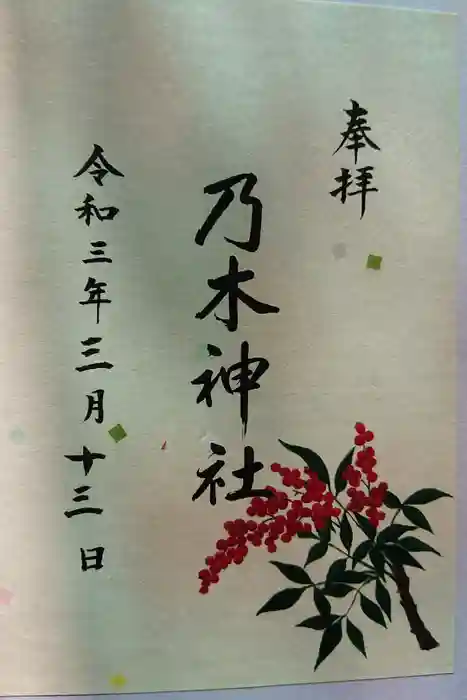 奉拝
乃木神社
令和三年三月十三日